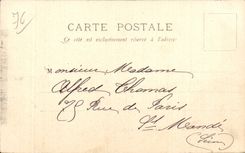 76
CARTE POSTALE
Ce côté est exclusivement réservé à l'adresse
Monsieur Madame
Alfred Chamas
75 Rue de Paris
St Mandé
(Seine)